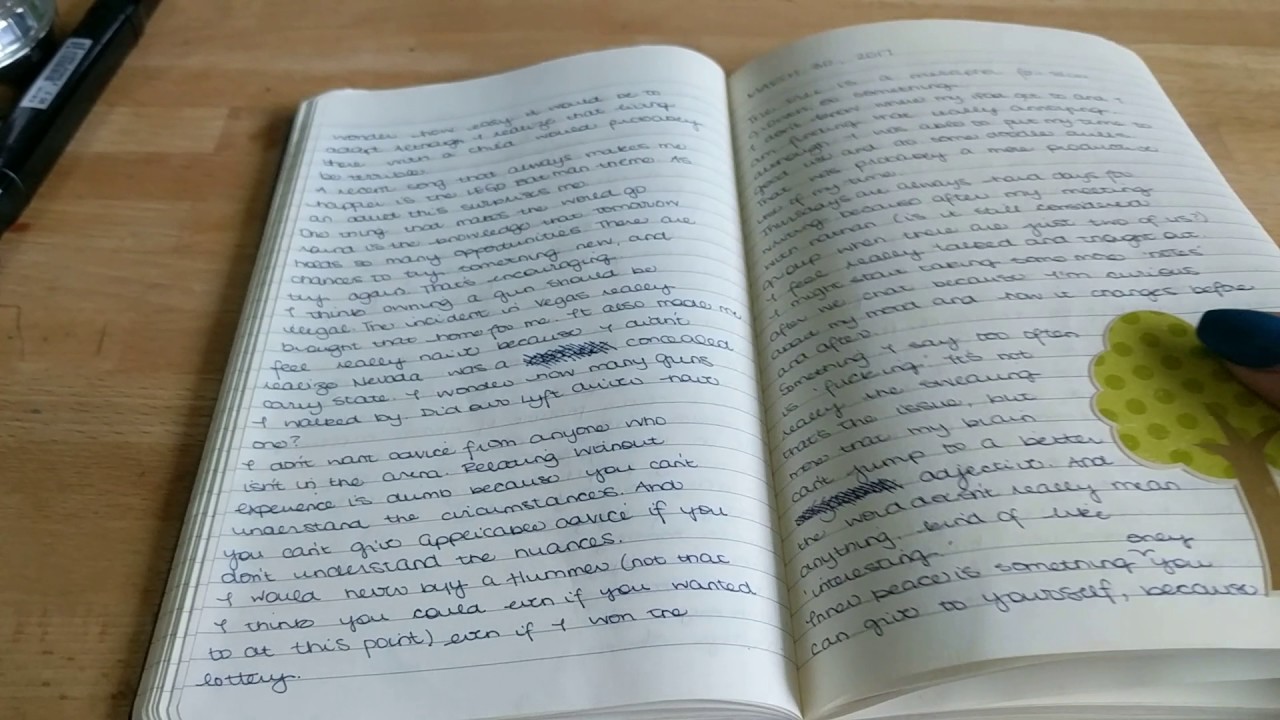 wonder how easy it would be to
adapt. Although I realize that living
there with a child would probably
be terrible.
A recent song that always makes me
happier is the LEGO Batman theme. As
an adult this surprises me.
One thing that makes the world go
round is the knowledge that tomorrow
holds so many opportunities. There are
chances to try something new, and
try again. That's encouraging.
I think owning a gun should be
illegal. The incident in Vegas really
brought that home for me. It also made me
feel really naive because I didn't
realize Nevada was a concealed
carry state. I wonder how many guns
I walked by. Did our Lyft driver have
one?
I don't want advice from anyone who
isn't in the arena. Relating without
experience is dumb because you can't
understand the circumstances. And
you can't give applicable advice if you
don't understand the nuances.
I would never buy a Hummer (not that
I think you could even if you wanted
to at this point) even if I won the
lottery.
MARCH 30, 2017
This is a
or something.
I don't even know my got to and I
am finding that really annoying
although I was able to put my time to
good use and do some
that was probably a more productive
use of my time.
Thursdays are always hard days for
writing because after my meeting
with nathan (is it still considered
group when there are just two of us?)
I feel really talked and thought out.
I might start taking some more 'notes'
after we chat because I'm curious
about my mood and how it changes before
and after.
Something I say too often
is 'fucking'. It's not
really the swearing
that's the issue, but
more that my brain
can't jump to a better
adjective. And
the word doesn't really mean
anything. kind of like
'interesting'.
Inner peace is something only you
can give to yourself, because